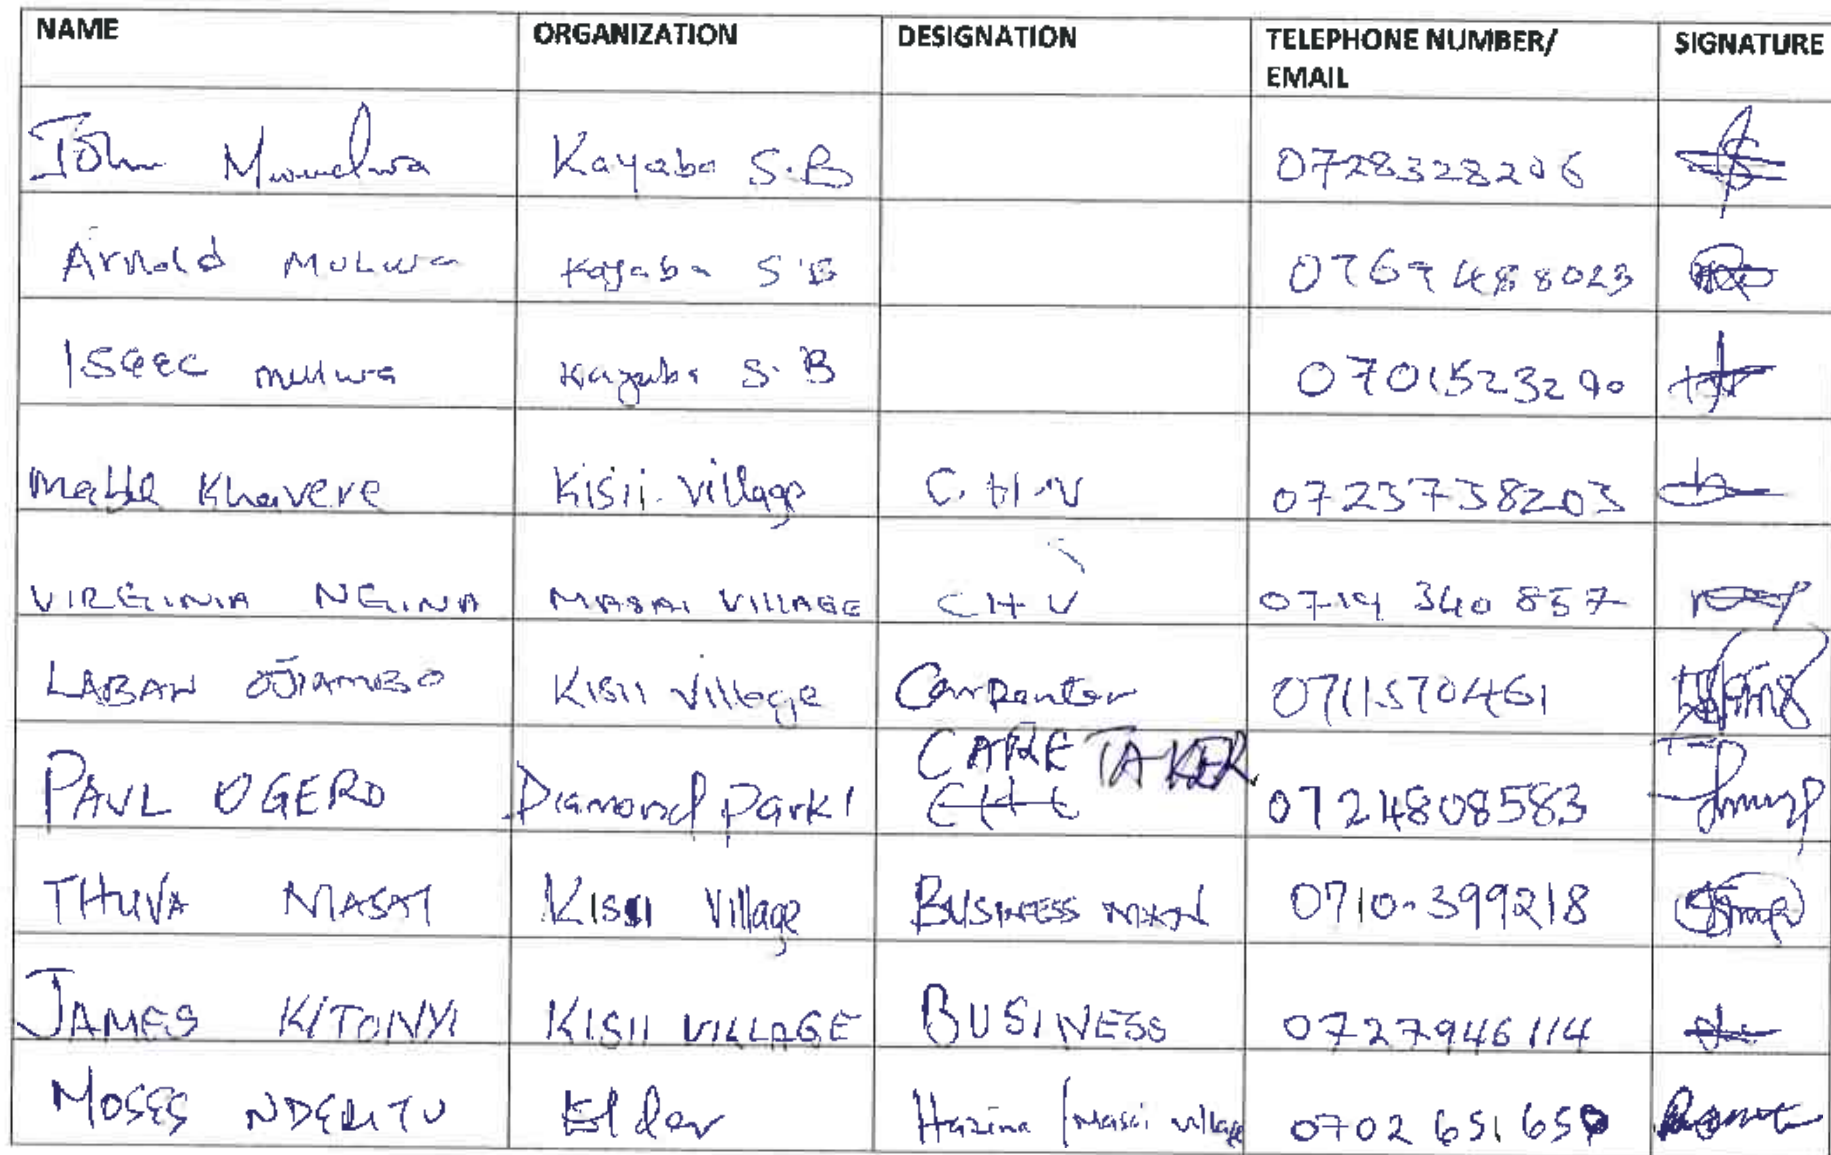 NAME ORGANIZATION DESIGNATION TELEPHONE NUMBER/ SIGNATURE
EMAIL
John Kayaba S.B 0728328206
Arnold Mulwa Kayaba S.B 0769488023
Isaac mulwa Kayaba S.B 0701523290
Mable Khavere Kisii village C.H.V 0723738203
VIRGINIA NGINA MASAI VILLAGE CHV 0719 340 857
LABAN OJIAMBO KISII Village Carpenter 0711570461
CARE TAKER
PAUL OGERO Diamond Park 1 0724808583
THUVA MASAI KISII Village BUSINESS MAN 0710-399218
JAMES KITONYI KISII VILLAGE BUSINESS 0727946114
MOSES NDERITU Elder Hazina / Masai village 0702 651 650